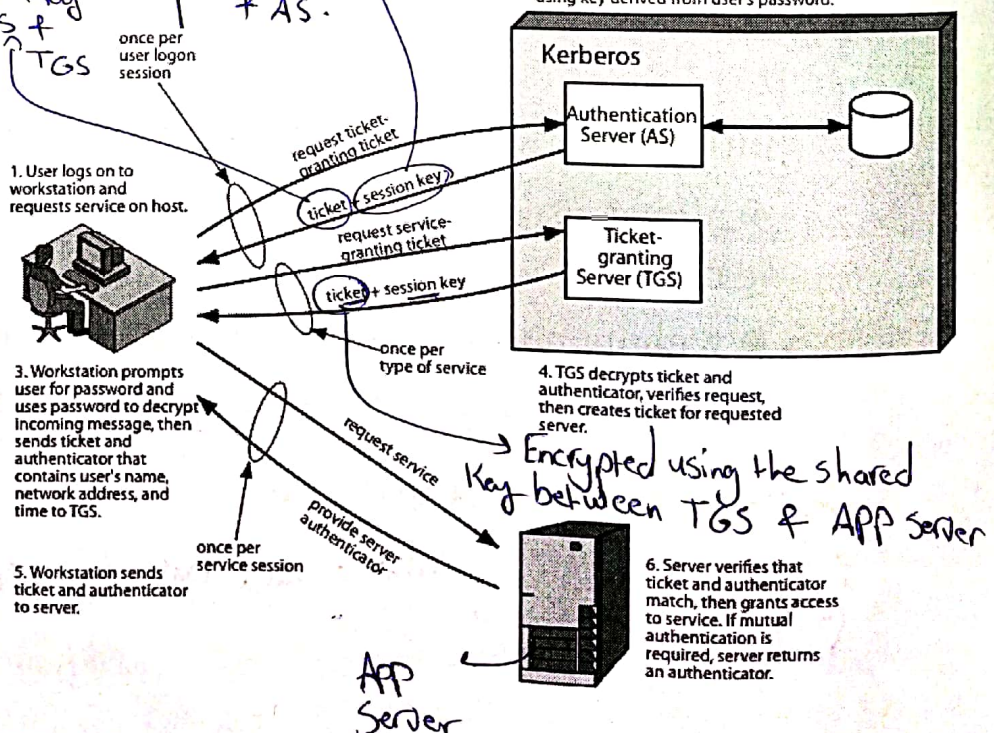 using key derived from user's password.
& AS.
&
TGS
once per
user logon
session
Kerberos
Authentication
Server (AS)
request ticket-
granting ticket
ticket + session key
1. User logs on to
workstation and
requests service on host.
request service-
granting ticket
ticket + session key
Ticket-
granting
Server (TGS)
once per
type of service
3. Workstation prompts
user for password and
uses password to decrypt
incoming message, then
sends ticket and
authenticator that
contains user's name,
network address, and
time to TGS.
4. TGS decrypts ticket and
authenticator, verifies request,
then creates ticket for requested
server.
Encrypted using the shared
Key between TGS & APP Server
request service
provide server
authenticator
once per
service session
5. Workstation sends
ticket and authenticator
to server.
6. Server verifies that
ticket and authenticator
match, then grants access
to service. If mutual
authentication is
required, server returns
an authenticator.
App
Server